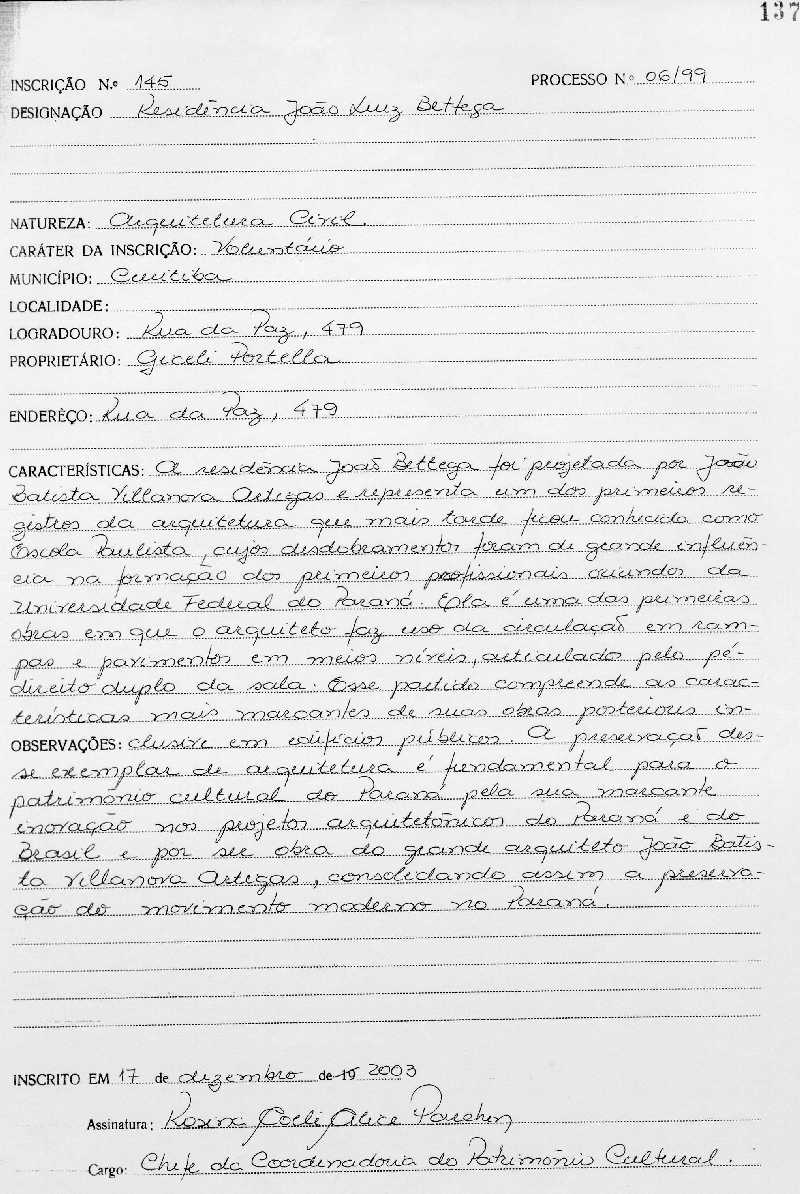 137
INSCRIÇÃO N.º 145 PROCESSO Nº 06/99
DESIGNAÇÃO Residência João Luiz Bettega
NATUREZA: Arquitetura Civil.
CARÁTER DA INSCRIÇÃO: Voluntário
MUNICÍPIO: Curitiba
LOCALIDADE:
LOGRADOURO: Rua da Paz, 479
PROPRIETÁRIO: Giceli Portella
ENDERÊÇO: Rua da Paz, 479
CARACTERÍSTICAS: A residência João Bettega foi projetada por João
Batista Villanova Artigas e representa um dos primeiros re-
gistros da arquitetura que mais tarde ficou conhecida como
Escola Paulista, cujos desdobramentos foram de grande influên-
cia na formação dos primeiros profissionais oriundos da
Universidade Federal do Paraná. Ela é uma das primeiras
obras em que o arquiteto faz uso da circulação em ram-
pas e pavimentos em meios níveis, articulado pelo pé-
direito duplo da sala. Esse partido compreende as carac-
terísticas mais marcantes de suas obras posteriores in-
OBSERVAÇÕES: clusive em edifícios públicos. A preservação des-
se exemplar de arquitetura é fundamental para o
patrimônio cultural do Paraná pela sua marcante
inovação nos projetos arquitetônicos do Paraná e do
Brasil e por ser obra do grande arquiteto João Batis-
ta Villanova Artigas, consolidando assim a preserva-
ção do movimento moderno no Paraná.
INSCRITO EM 17 de dezembro de 19 2003
Assinatura: Rosina Coeli Alice Parchen
Cargo: Chefe da Coordenadoria do Patrimônio Cultural.